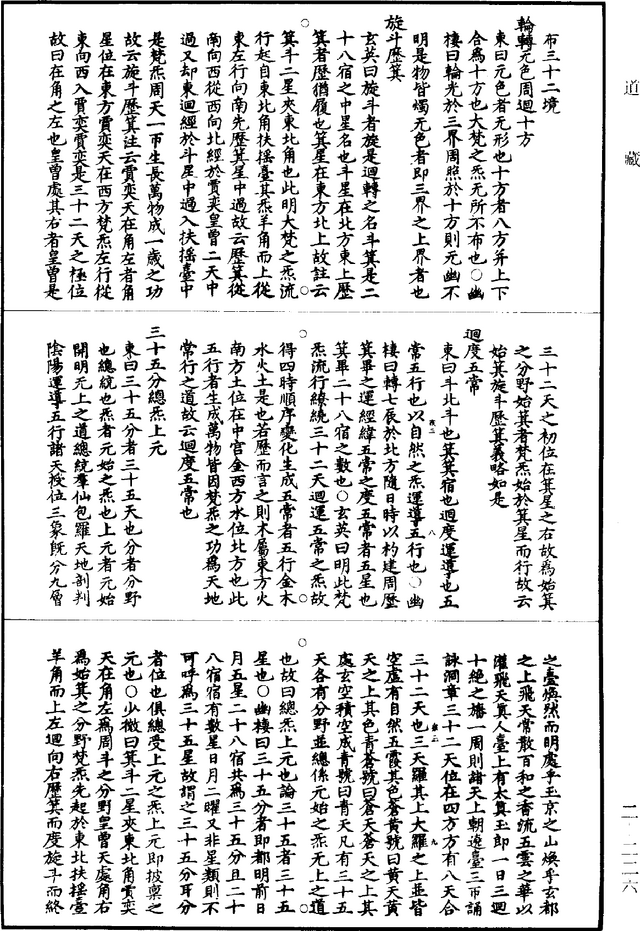 布三十二境
輪轉无色周迴十方
東曰元色者无形也十方者八方并上下
合爲十方也大梵之炁无所不布也○幽
棲曰輪光於三界周照於十方則无幽不
明是物皆燭无色者即三界之上界者也
旋斗歷箕
玄英曰旋斗者旋是迴轉之名斗箕是二
十八宿之中星名也斗星在北方東上歷
箕者歷猶履也箕星在東方北上故註云
箕斗二星夾東北角也此明大梵之炁流
行起自東北角扶搖臺其炁羊角而上從
東左行向南先歷箕星中過故云歷箕從
南向西從西向北經於賈奕皇曾二天中
過又却東迴經於斗星中過入扶搖臺中
是梵炁周天一帀生長萬物成一歲之功
故云旋斗歷箕註云賈奕天在角左者角
星位在東方賈奕天在西方梵炁左行從
東向西入賈奕賈奕是三十二天之極位
故曰在角之左也皇曾處其右者皇曾是
三十二天之初位在箕星之右故爲始箕
之分野始箕者梵炁始於箕星而行故云
始箕旋斗歷箕義略如是
迴度五常
東曰斗北斗也箕箕宿也迴度運導也五
常五行也以自然之炁運導五行也○幽
棲曰轉七辰於北方隨日時以杓建周歷
箕畢之運經緯五常之度五常者五星也
箕畢二十八宿之數也○玄英曰明此梵
炁流行繚繞三十二天迴運五常之炁故
得四時順序變化生成五常者五行金木
水火土是也若歷而言之則木屬東方火
南方土位在中宮金西方水位北方也此
五行者生成萬物皆因梵炁之功爲天地
常行之道故云迴度五常也
三十五分總炁上元
東曰三十五分者三十五天也分者分野
也總統也炁者元始之炁也上元者元始
開明无上之道總統羣仙包羅天地剖判
陰陽運導五行諸天授位三象旣分九層
之臺煥然而明處乎玉京之山煥乎玄都
之上飛天常散百和之香流五雲之華以
灌飛天真人臺上有太真玉郎一日三迴
十絕之旛一周則諸天上朝遶臺三帀誦
詠洞章三十二天位在四方方有八天合
三十二天也三天羅其上大羅之上並皆
空虛有自然五霞其色蒼黃號曰黃天黃
天之上其色青蒼號曰蒼天蒼天之上其
處玄空積空成青號曰青天凡有三十五
天各有分野並總係元始之炁无上之道
也故曰總炁上元也論三十五者三十五
星也○幽棲曰三十五分者即都明前日
月五星二十八宿共爲三十五分且二十
八宿宿有數星日月二曜又非星類則不
可呼爲三十五星故謂之三十五分耳分
者位也俱總受上元之炁上元即披禀之
元也○少微曰箕斗二星夾東北角賈奕
天在角左爲周斗之分野皇曾天處角右
爲始箕之分野梵炁先起於東北扶搖臺
羊角而上左迴向右歷箕而度旋斗而終
道藏
二·二二六